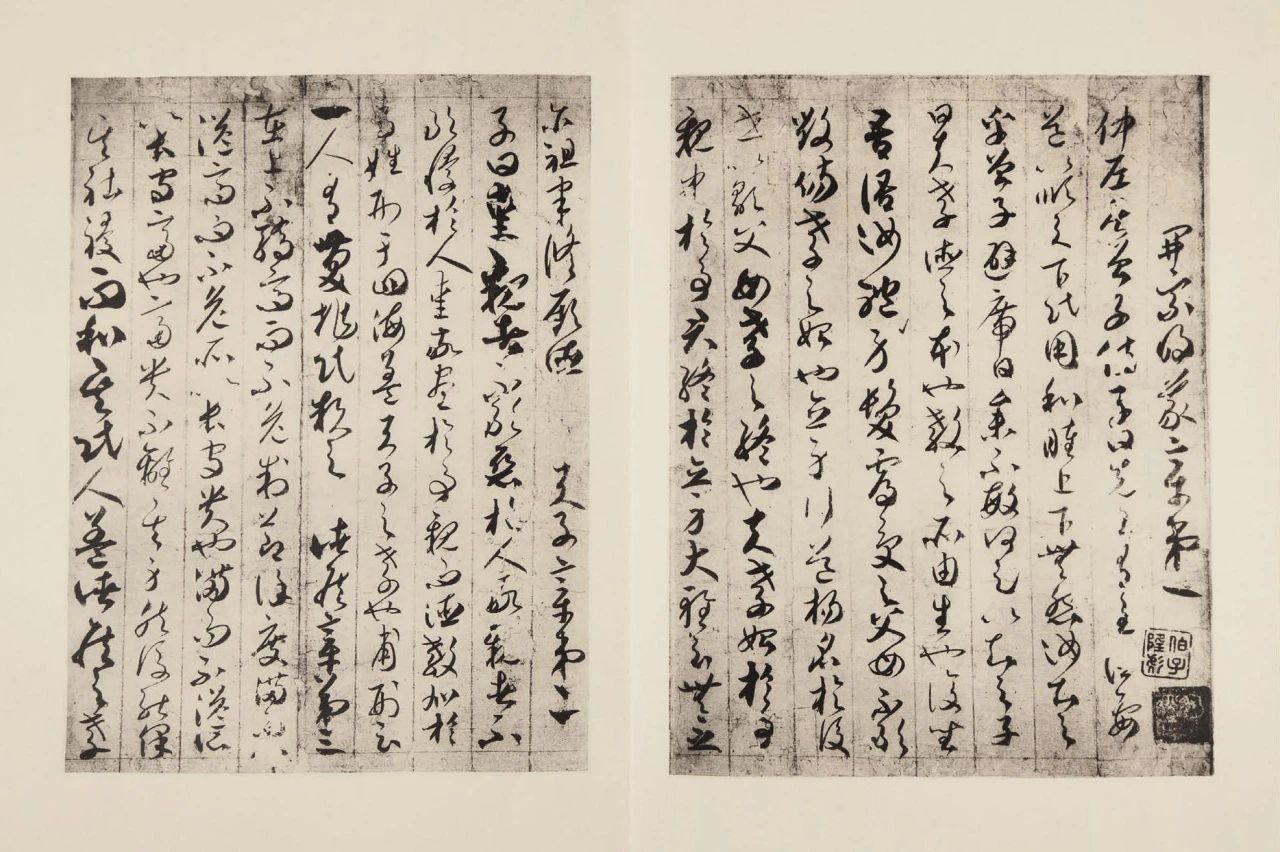 開宗明義章第一
仲尼居曾子侍子曰先王有至德要
道以順天下民用和睦上下無怨汝知之
乎曾子避席曰參不敏何足以知之子
曰夫孝德之本也教之所由生也復坐
吾語汝體身髮膚受之父母不敢
毀傷孝之始也立身行道揚名於後
世以顯父母孝之終也夫孝始於事
親中於事君終於立身大雅云無念
尒祖聿脩厥德 天子章第二
子曰愛親者不敢惡於人敬親者不
敢慢於人愛敬盡於事親而德教加於
百姓刑于四海蓋天子之孝也甫刑云
一人有慶兆民賴之 諸侯章第三
在上不驕高而不危制節謹度滿而不
溢高而不危所以長守貴也滿而不溢所
以長守富也富貴不離其身然後能保
其社稷而和其民人蓋諸侯之孝